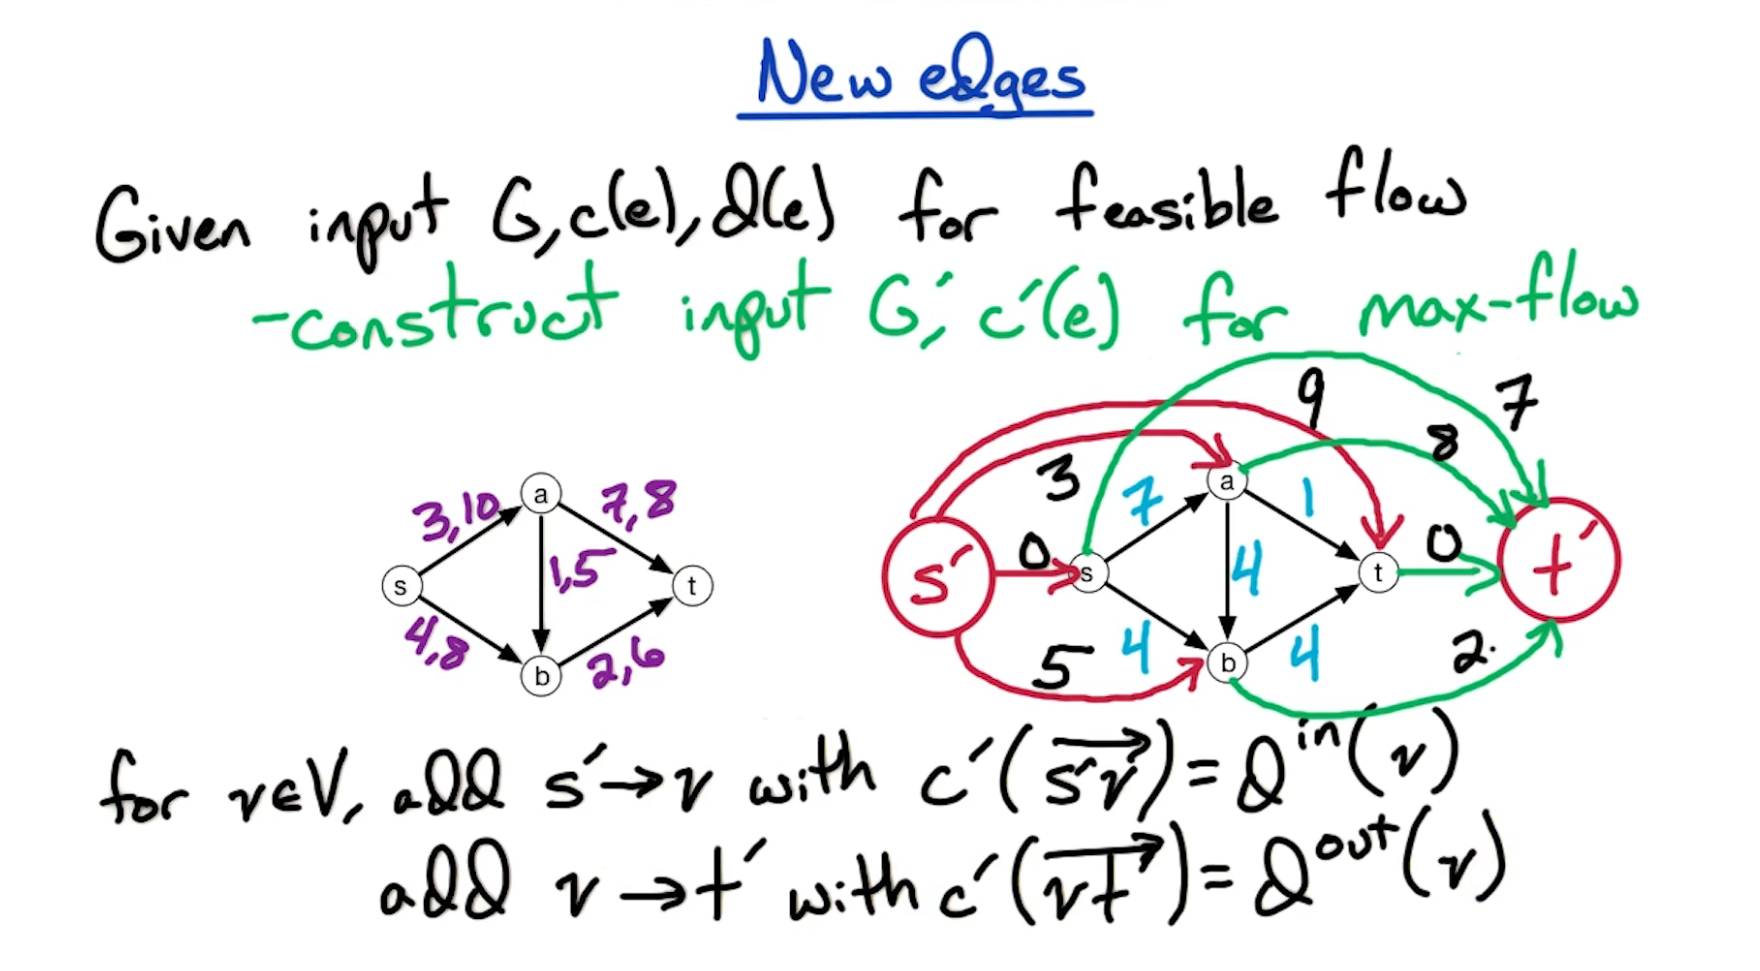 New edges
Given input G, c(e), d(e) for feasible flow
-construct input G', c'(e) for max-flow
9
7
8
3
a
3,10
7,8
a
7
1
0
0
s'
s
t
t'
1,5
4
s
t
4,8
2,6
b
5
4
b
4
2.
for v∈V, add s'→v with c'(s'v) = d^in(v)
add v→t' with c'(vt') = d^out(v)